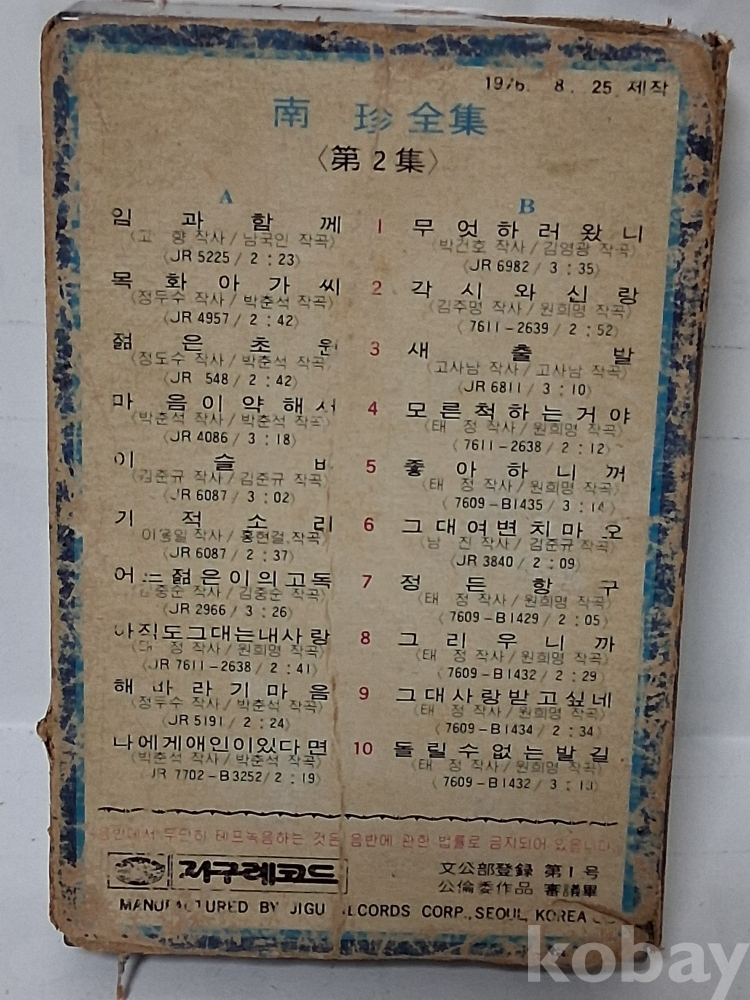 1976. 8. 25. 제작
南 珍 全集
〈第2集〉
A
임과함께
〈고 향 작사/남국인 작곡〉
〈JR 5225/2:23〉
목화아가씨
〈정두수 작사/박춘석 작곡〉
〈JR 4957/2:42〉
젊은초원
〈정도수 작사/박춘석 작곡〉
〈JR 548/2:42〉
마음이약해서
〈박춘석 작사/박춘석 작곡〉
〈JR 4086/3:18〉
이슬비
〈김준규 작사/김준규 작곡〉
〈JR 6087/3:02〉
기적소리
이용일 작사/홍현걸 작곡〉
〈JR 6087/2:37〉
어느젊은이의고독
김중순 작사/김중순 작곡〉
〈JR 2966/3:26〉
아직도그대는내사랑
〈태 정 작사/원희명 작곡〉
〈JR 7611-2638/2:41〉
해바라기마음
〈정두수 작사/박춘석 작곡〉
〈JR 5191/2:24〉
나에게애인이있다면
〈박춘석 작사/박춘석 작곡〉
JR 7702-B3252/2:19〉
1
2
3
4
5
6
7
8
9
10
B
무엇하러왔니
〈박건호 작사/김영광 작곡〉
〈JR 6982/3:35〉
각시와신랑
〈김주명 작사/원희명 작곡〉
〈7611-2639/2:52〉
새출발
〈고사남 작사/고사남 작곡〉
〈JR 6811/3:10〉
모른척하는거야
〈태 정 작사/원희명 작곡〉
〈7611-2638/2:12〉
좋아하니꺼
〈태 정 작사/원희명 작곡〉
〈7609-B1435/3:14〉
그대여변치마오
〈남 진 작사/김준규 작곡〉
〈JR 3840/2:09〉
정든항구
〈태 정 작사/원희명 작곡〉
〈7609-B1429/2:05〉
그리우니까
〈태 정 작사/원희명 작곡〉
〈7609-B1432/2:29〉
그대사랑받고싶네
〈태 정 작사/원희명 작곡〉
〈7609-B1434/2:34〉
돌릴수없는발길
〈태 정 작사/원희명 작곡〉
〈7609-B1432/
음반에서 무단히 테프녹음하는 것은 음반에 관한 법률로 금지되어 있읍니다
지구레코드
文公部登録 第1号
公倫委作品 審議畢
MANUFACTURED BY JIGU RECORDS CORP., SEOUL, KOREA
kobay